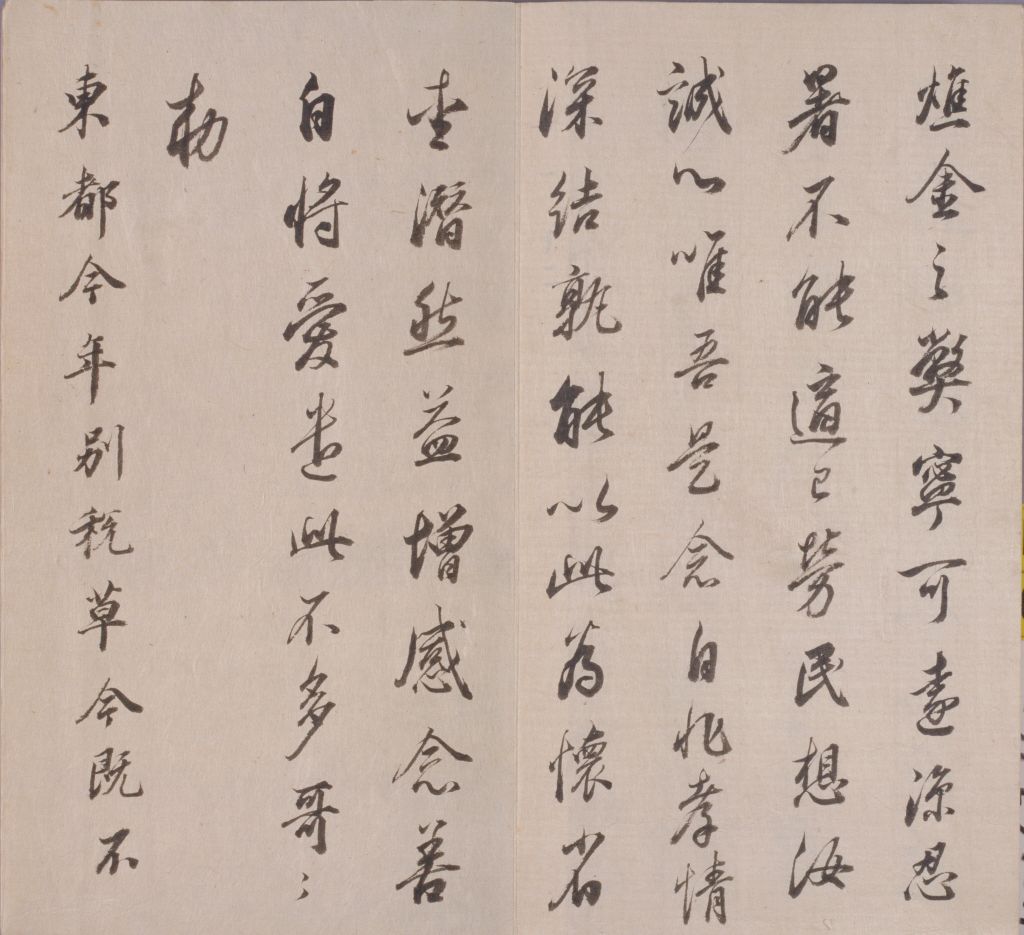 燋金之弊寧可違涼忍
暑不能適已勞民想汝
誠心唯吾是念自非孝情
深結孰能以此為懷省
書潛然益增感念善
自將愛遣此不多哥〻
敕
東都今年別稅草今既不